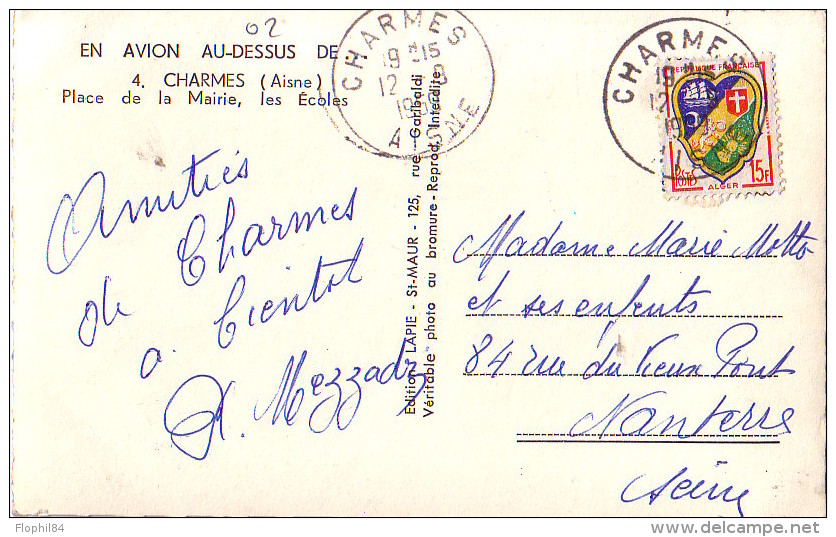 02
EN AVION AU-DESSUS DE
4. CHARMES (Aisne)
Place de la Mairie, les Écoles
CHARMES
19 H 15
12
AISNE
CHARMES
12
RÉPUBLIQUE FRANÇAISE
POSTES
15F
ALGER
Amitiés
de Charmes
a bientot
Mezzadri
Edition LAPIE - St-MAUR - 125, rue Garibaldi
Véritable photo au bromure - Reprod. Interdite
Madame Marie Motto
et ses enfants
84 rue du Vieux Pont
Nanterre
Seine
Flophil84
delcampe.net